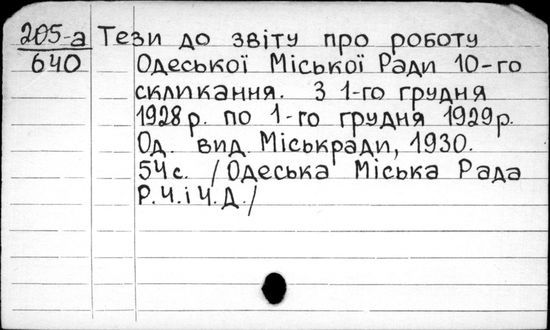 205-а Тези до звіту про роботу
640 Одеської Міської Ради 10-го
скликання. З 1-го грудня
1928 р. по 1-го грудня 1929 р.
Од. вид. Міськради, 1930.
54 с. /Одеська Міська Рада
Р.Ч.і Ч.Д./